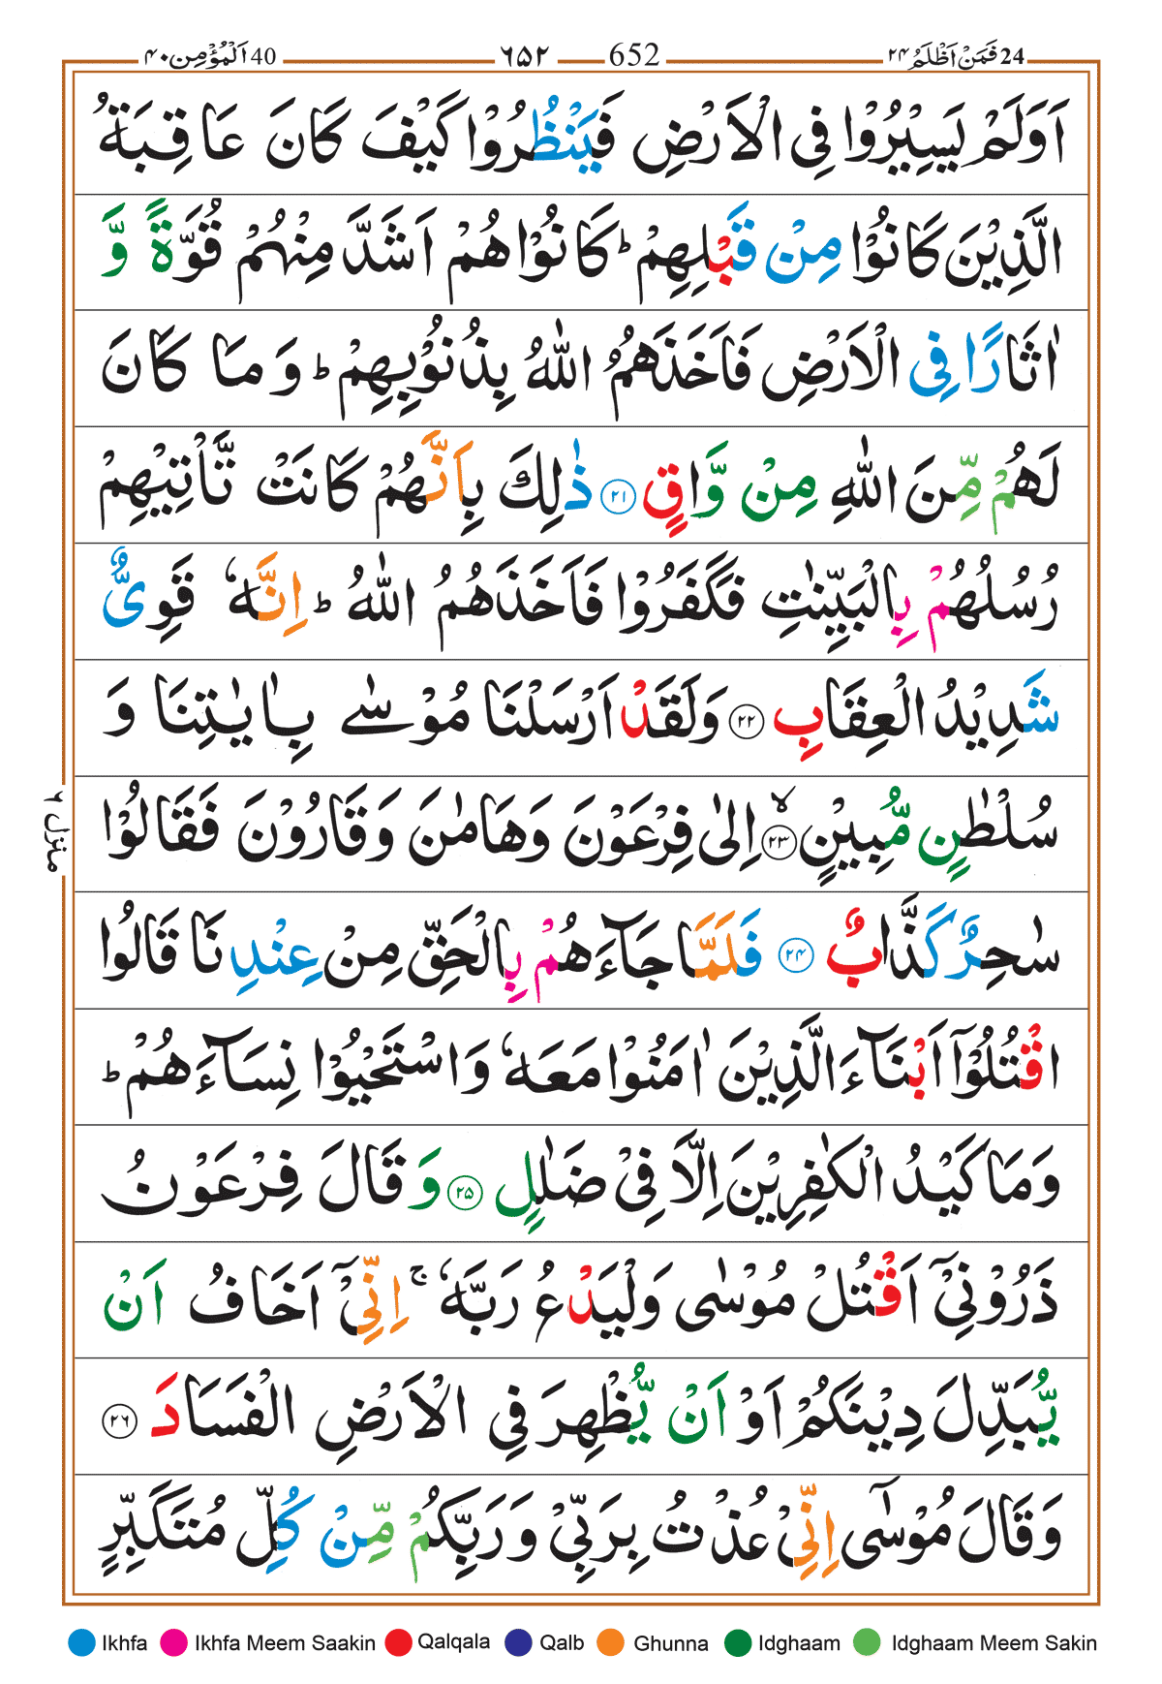 24 فَمَنْ اَظْلَمُ ۲۴ 652 ۶۵۲ 40 اَلْمُؤْمِن ۴۰
اَوَلَمْ يَسِيْرُوْا فِى الْاَرْضِ فَيَنْظُرُوْا كَيْفَ كَانَ عَاقِبَةُ
الَّذِيْنَ كَانُوْا مِنْ قَبْلِهِمْ ؕ كَانُوْا هُمْ اَشَدَّ مِنْهُمْ قُوَّةً وَّ
اٰثَارًا فِى الْاَرْضِ فَاَخَذَهُمُ اللّٰهُ بِذُنُوْبِهِمْ ؕ وَمَا كَانَ
لَهُمْ مِّنَ اللّٰهِ مِنْ وَّاقٍ ۲۱ ذٰلِكَ بِاَنَّهُمْ كَانَتْ تَّاْتِيْهِمْ
رُسُلُهُمْ بِالْبَيِّنٰتِ فَكَفَرُوْا فَاَخَذَهُمُ اللّٰهُ ؕ اِنَّهٗ قَوِىٌّ
شَدِيْدُ الْعِقَابِ ۲۲ وَلَقَدْ اَرْسَلْنَا مُوْسٰى بِاٰيٰتِنَا وَ
سُلْطٰنٍ مُّبِيْنٍ ۙ ۲۳ اِلٰى فِرْعَوْنَ وَهَامٰنَ وَقَارُوْنَ فَقَالُوْا
سٰحِرٌ كَذَّابٌ ۲۴ فَلَمَّا جَآءَهُمْ بِالْحَقِّ مِنْ عِنْدِنَا قَالُوا
اقْتُلُوْۤا اَبْنَآءَ الَّذِيْنَ اٰمَنُوْا مَعَهٗ وَاسْتَحْيُوْا نِسَآءَهُمْ ؕ
وَمَا كَيْدُ الْكٰفِرِيْنَ اِلَّا فِىْ ضَلٰلٍ ۲۵ وَقَالَ فِرْعَوْنُ
ذَرُوْنِىْۤ اَقْتُلْ مُوْسٰى وَلْيَدْعُ رَبَّهٗ ۚ اِنِّىْۤ اَخَافُ اَنْ
يُّبَدِّلَ دِيْنَكُمْ اَوْ اَنْ يُّظْهِرَ فِى الْاَرْضِ الْفَسَادَ ۲۶
وَقَالَ مُوْسٰٓى اِنِّىْ عُذْتُ بِرَبِّىْ وَرَبِّكُمْ مِّنْ كُلِّ مُتَكَبِّرٍ
منزل ۶
Ikhfa Ikhfa Meem Saakin Qalqala Qalb Ghunna Idghaam Idghaam Meem Sakin